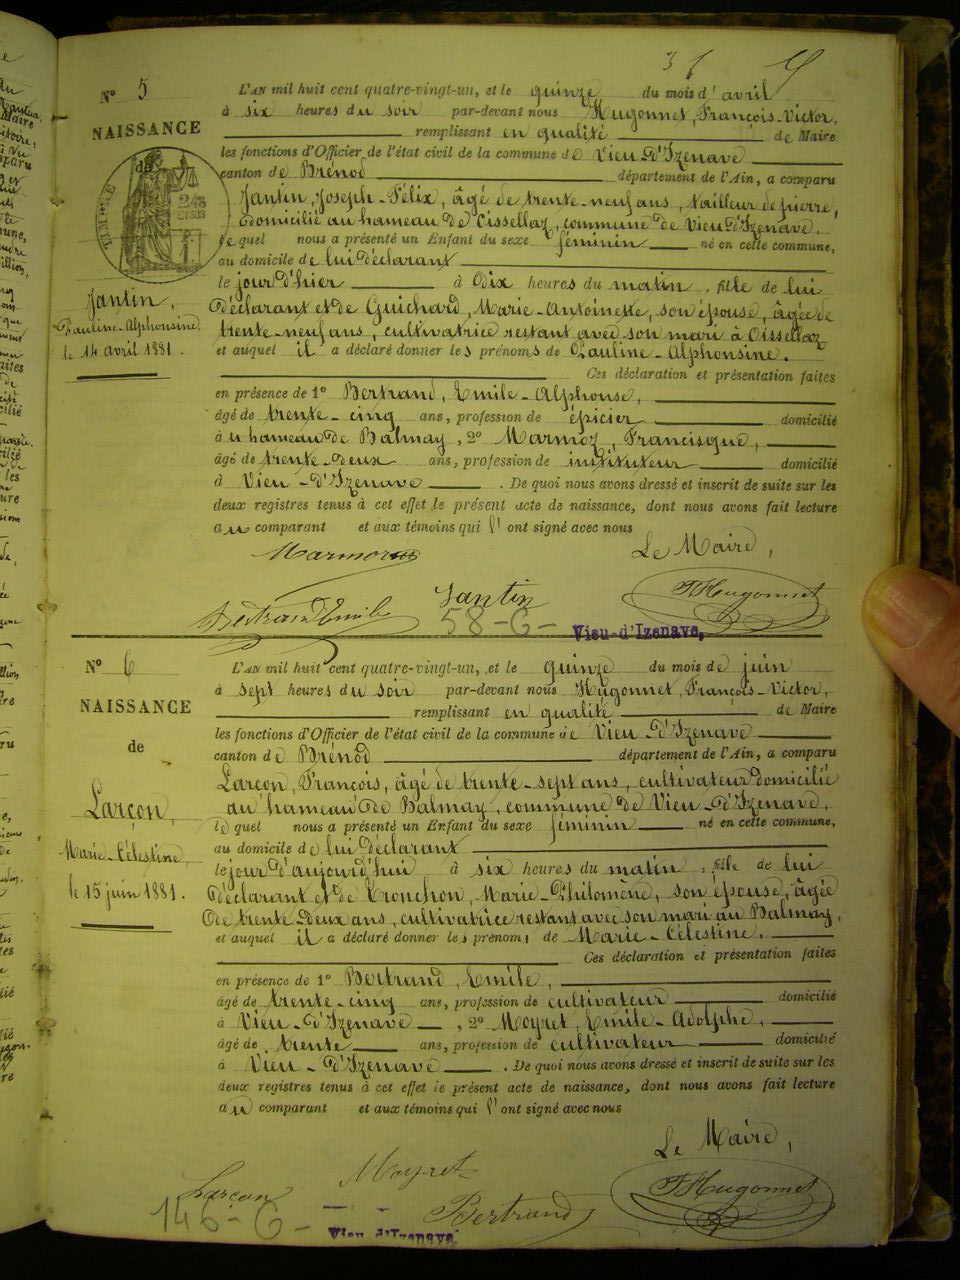 37
N° 5
NAISSANCE
de
Jantin,
Pauline-Alphonsine,
le 14 avril 1881.
L'AN mil huit cent quatre-vingt-un, et le quinze du mois d'avril
à six heures du soir par-devant nous Hugonnet, François-Victor,
remplissant en qualité de Maire
les fonctions d'Officier de l'état civil de la commune de Vieu-d'Izenave
canton de Brénod département de l'Ain, a comparu
Jantin, Joseph-Félix, âgé de trente-neuf ans, tailleur de pierre,
domicilié au hameau de Cissellaz, commune de Vieu-d'Izenave.
Lequel nous a présenté un Enfant du sexe féminin né en cette commune,
au domicile de lui déclarant
le jour d'hier à dix heures du matin, fille de lui
déclarant et de Guichard, Marie-Antoinette, son épouse, âgée de
trente-neuf ans, cultivatrice restant avec son mari à Oissellaz
et auquel il a déclaré donner les prénoms de Pauline-Alphonsine.
Ces déclaration et présentation faites
en présence de 1° Bertrand, Emile-Alphonse,
âgé de trente-cinq ans, profession de épicier domicilié
à u hameau de Balmay, 2° Marmoz, Francisque,
âgé de trente-deux ans, profession de instituteur domicilié
à Vieu-d'Izenave. De quoi nous avons dressé et inscrit de suite sur les
deux registres tenus à cet effet le présent acte de naissance, dont nous avons fait lecture
au comparant et aux témoins qui l'ont signé avec nous
Le Maire,
Jantin
Bertrand Emile
FHugonnet
58-G-
Vieu-d'Izenave,
N° 6
NAISSANCE
de
Larçon,
Marie-Célestine,
le 15 juin 1881.
L'AN mil huit cent quatre-vingt-un, et le quinze du mois de juin
à sept heures du soir par-devant nous Hugonnet, François-Victor,
remplissant en qualité de Maire
les fonctions d'Officier de l'état civil de la commune de Vieu-d'Izenave
canton de Brénod département de l'Ain, a comparu
Larçon, François, âgé de trente-sept ans, cultivateur domicilié
au hameau de Balmay, commune de Vieu-d'Izenave,
lequel nous a présenté un Enfant du sexe féminin né en cette commune,
au domicile de lui déclarant
le jour d'aujourd'hui à six heures du matin, fille de lui
déclarant et de Tronchon, Marie-Philomène, son épouse, âgée
de trente-deux ans, cultivatrice restant avec son mari au Balmay,
et auquel il a déclaré donner les prénoms de Marie-Célestine.
Ces déclaration et présentation faites
en présence de 1° Bertrand, Emile,
âgé de trente-cinq ans, profession de cultivateur domicilié
à Vieu-d'Izenave, 2° Moyret, Emile-Adolphe,
âgé de trente ans, profession de cultivateur domicilié
à Vieu-d'Izenave. De quoi nous avons dressé et inscrit de suite sur les
deux registres tenus à cet effet le présent acte de naissance, dont nous avons fait lecture
au comparant et aux témoins qui l'ont signé avec nous
Le Maire,
Larçon
Moyret
Bertrand
FHugonnet
146-G-
Vieu-d'Izenave.